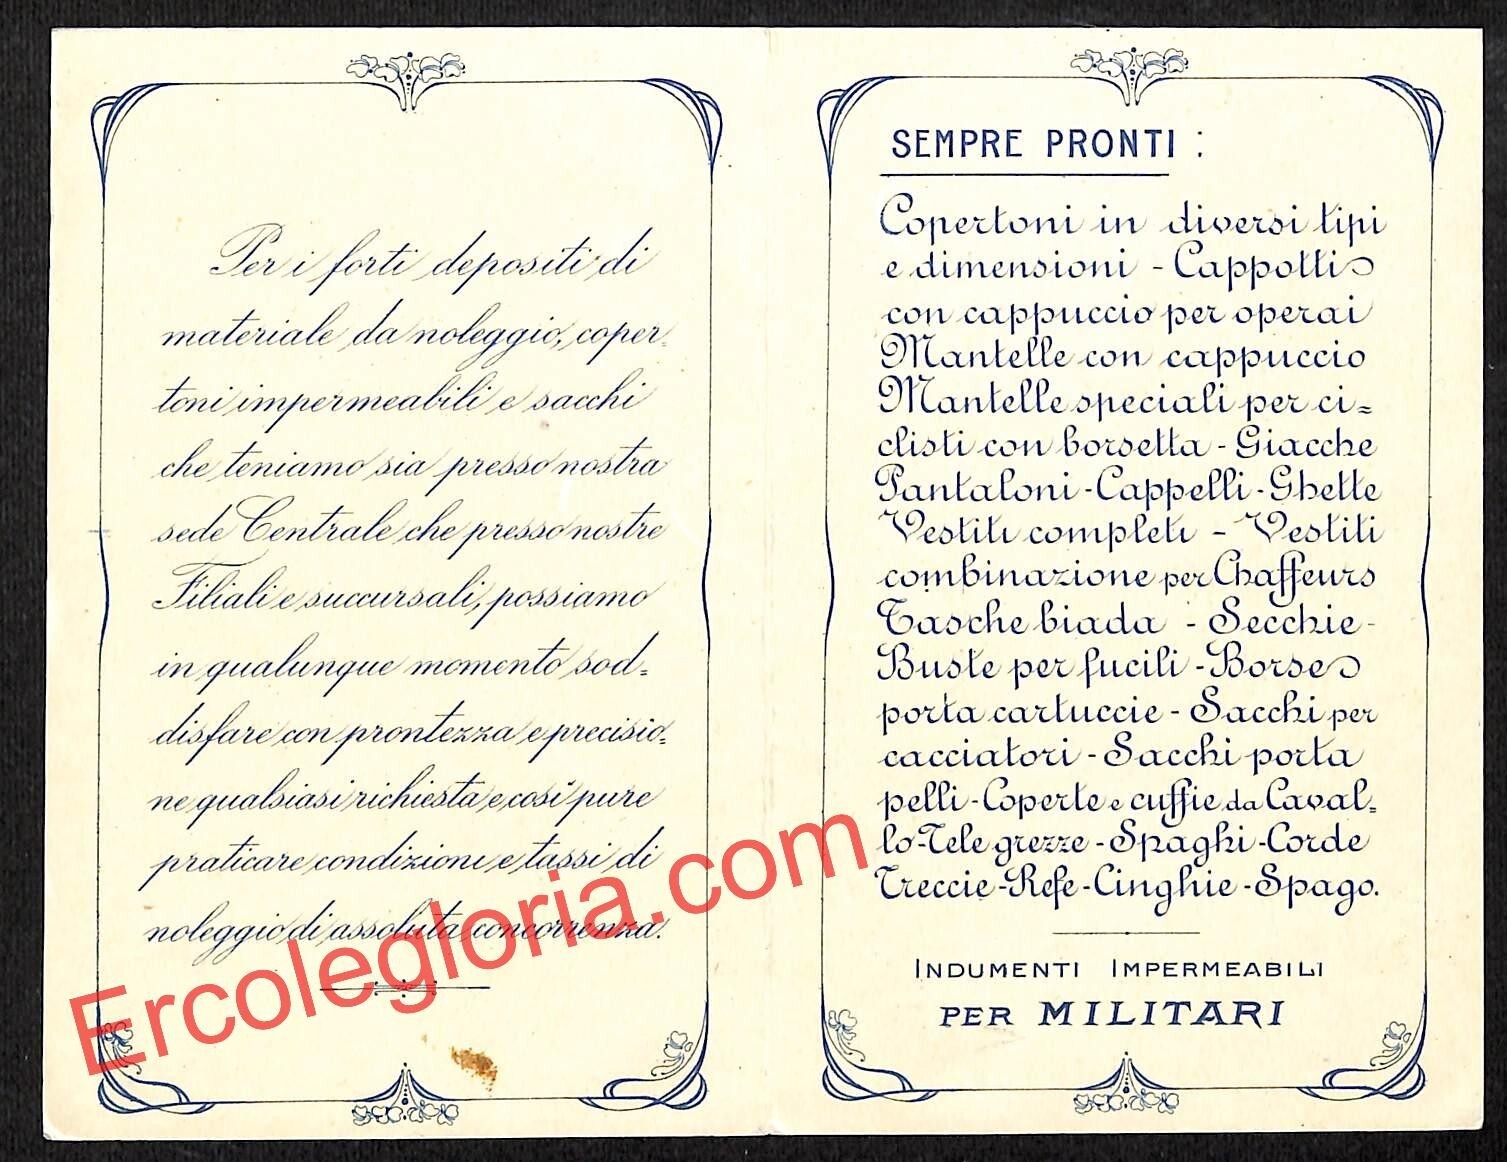 Per i forti depositi di
materiale da noleggio, coper=
toni impermeabili e sacchi
che teniamo sia presso nostra
sede Centrale che presso nostre
Filiali e succursali, possiamo
in qualunque momento sod=
disfare con prontezza e precisio=
ne qualsiasi richiesta e così pure
praticare condizioni e tassi di
noleggio di assoluta concorrenza.
SEMPRE PRONTI :
Copertoni in diversi tipi
e dimensioni - Cappotti
con cappuccio per operai
Mantelle con cappuccio
Mantelle speciali per ci=
clisti con borsetta - Giacche
Pantaloni - Cappelli - Ghette
Vestiti completi - Vestiti
combinazione per Chaffeurs
Tasche biada - Secchie -
Buste per fucili - Borse
porta cartuccie - Sacchi per
cacciatori - Sacchi porta
pelli - Coperte e cuffie da Caval=
lo - Tele grezze - Spaghi - Corde
Treccie - Refe - Cinghie - Spago.
INDUMENTI IMPERMEABILI
PER MILITARI
Ercolegloria.com